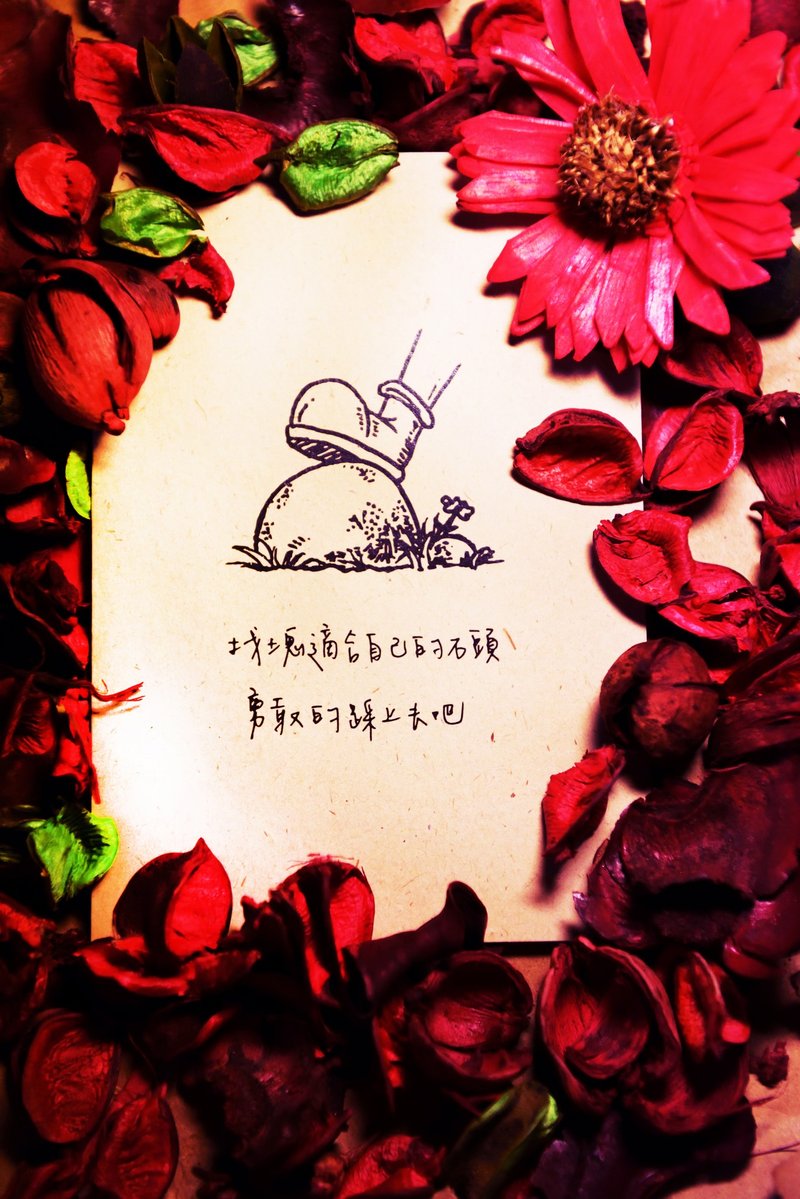 找塊適合自己的石頭
勇敢的踩上去吧